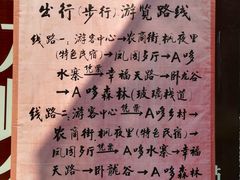 出行(步行)游览路线
线路一:游客中心→农商街 桃夜里
(特色民宿)→凤阁乡厅→A哆
水寨 凭票→幸福天路→卧龙谷
→A哆森林(玻璃栈道
线路二:游客中心 凭票→A哆乡村→
农商街桃夜里(特色民宿)→
凤阁乡厅→A哆水寨→幸福
天路→卧龍谷→A哆森林